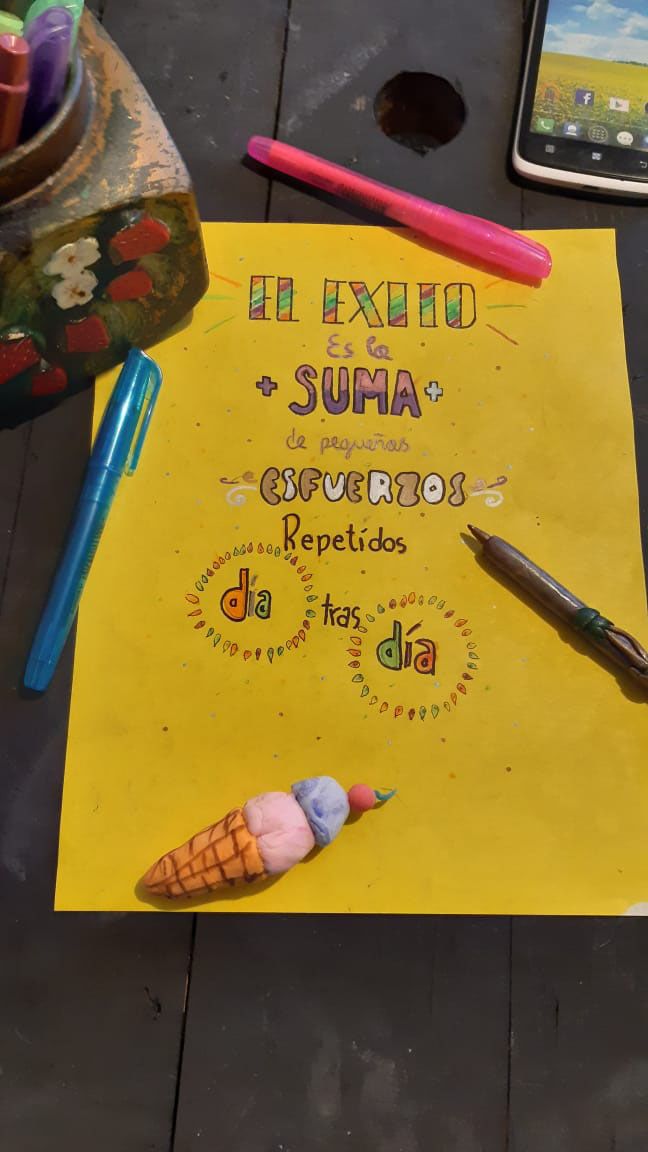 EL EXITO
Es la
+ SUMA +
de pequeñas
ESFUERZOS
Repetidos
día
tras
día